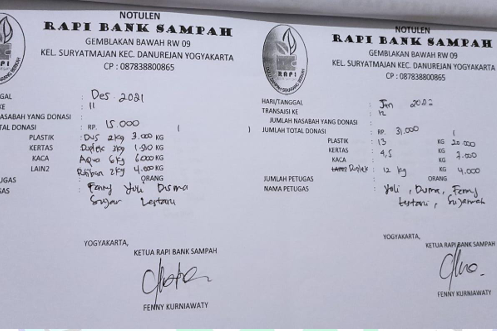 NOTULEN
RAPI BANK SAMPAH
GEMBLAKAN BAWAH RW 09
KEL. SURYATMAJAN KEC. DANUREJAN YOGYAKARTA
CP : 087838800865
RAPI
GGAL : Des 2021
KE : 11
NASABAH YANG DONASI :
TOTAL DONASI : RP. 15.000 ( )
PLASTIK : Dus 2kg 3.000 KG
KERTAS : KG
KACA : 6kg 6.000 KG
LAIN2 : 2kg 4.000 KG
UGAS : ORANG
GAS : Fenny Yuli Disma
Lestari
YOGYAKARTA,
KETUA RAPI BANK SAMPAH
FENNY KURNIAWATY
NOTULEN
RAPI BANK SAMPAH
GEMBLAKAN BAWAH RW 09
KEL. SURYATMAJAN KEC. DANUREJAN YOGYAKARTA
CP : 087838800865
RAPI
HARI/TANGGAL : Jan 2022
TRANSAKSI KE : 12
JUMLAH NASABAH YANG DONASI :
JUMLAH TOTAL DONASI : RP. 31.000 ( )
PLASTIK : 13 KG 20.000
KERTAS : 4,5 KG
KACA : KG 7.000
LAIN2 : 12 kg KG 4.000
JUMLAH PETUGAS : ORANG
NAMA PETUGAS : Yuli, Fenny
Lestari,
YOGYAKARTA,
KETUA RAPI BANK SAMPAH
FENNY KURNIAWATY